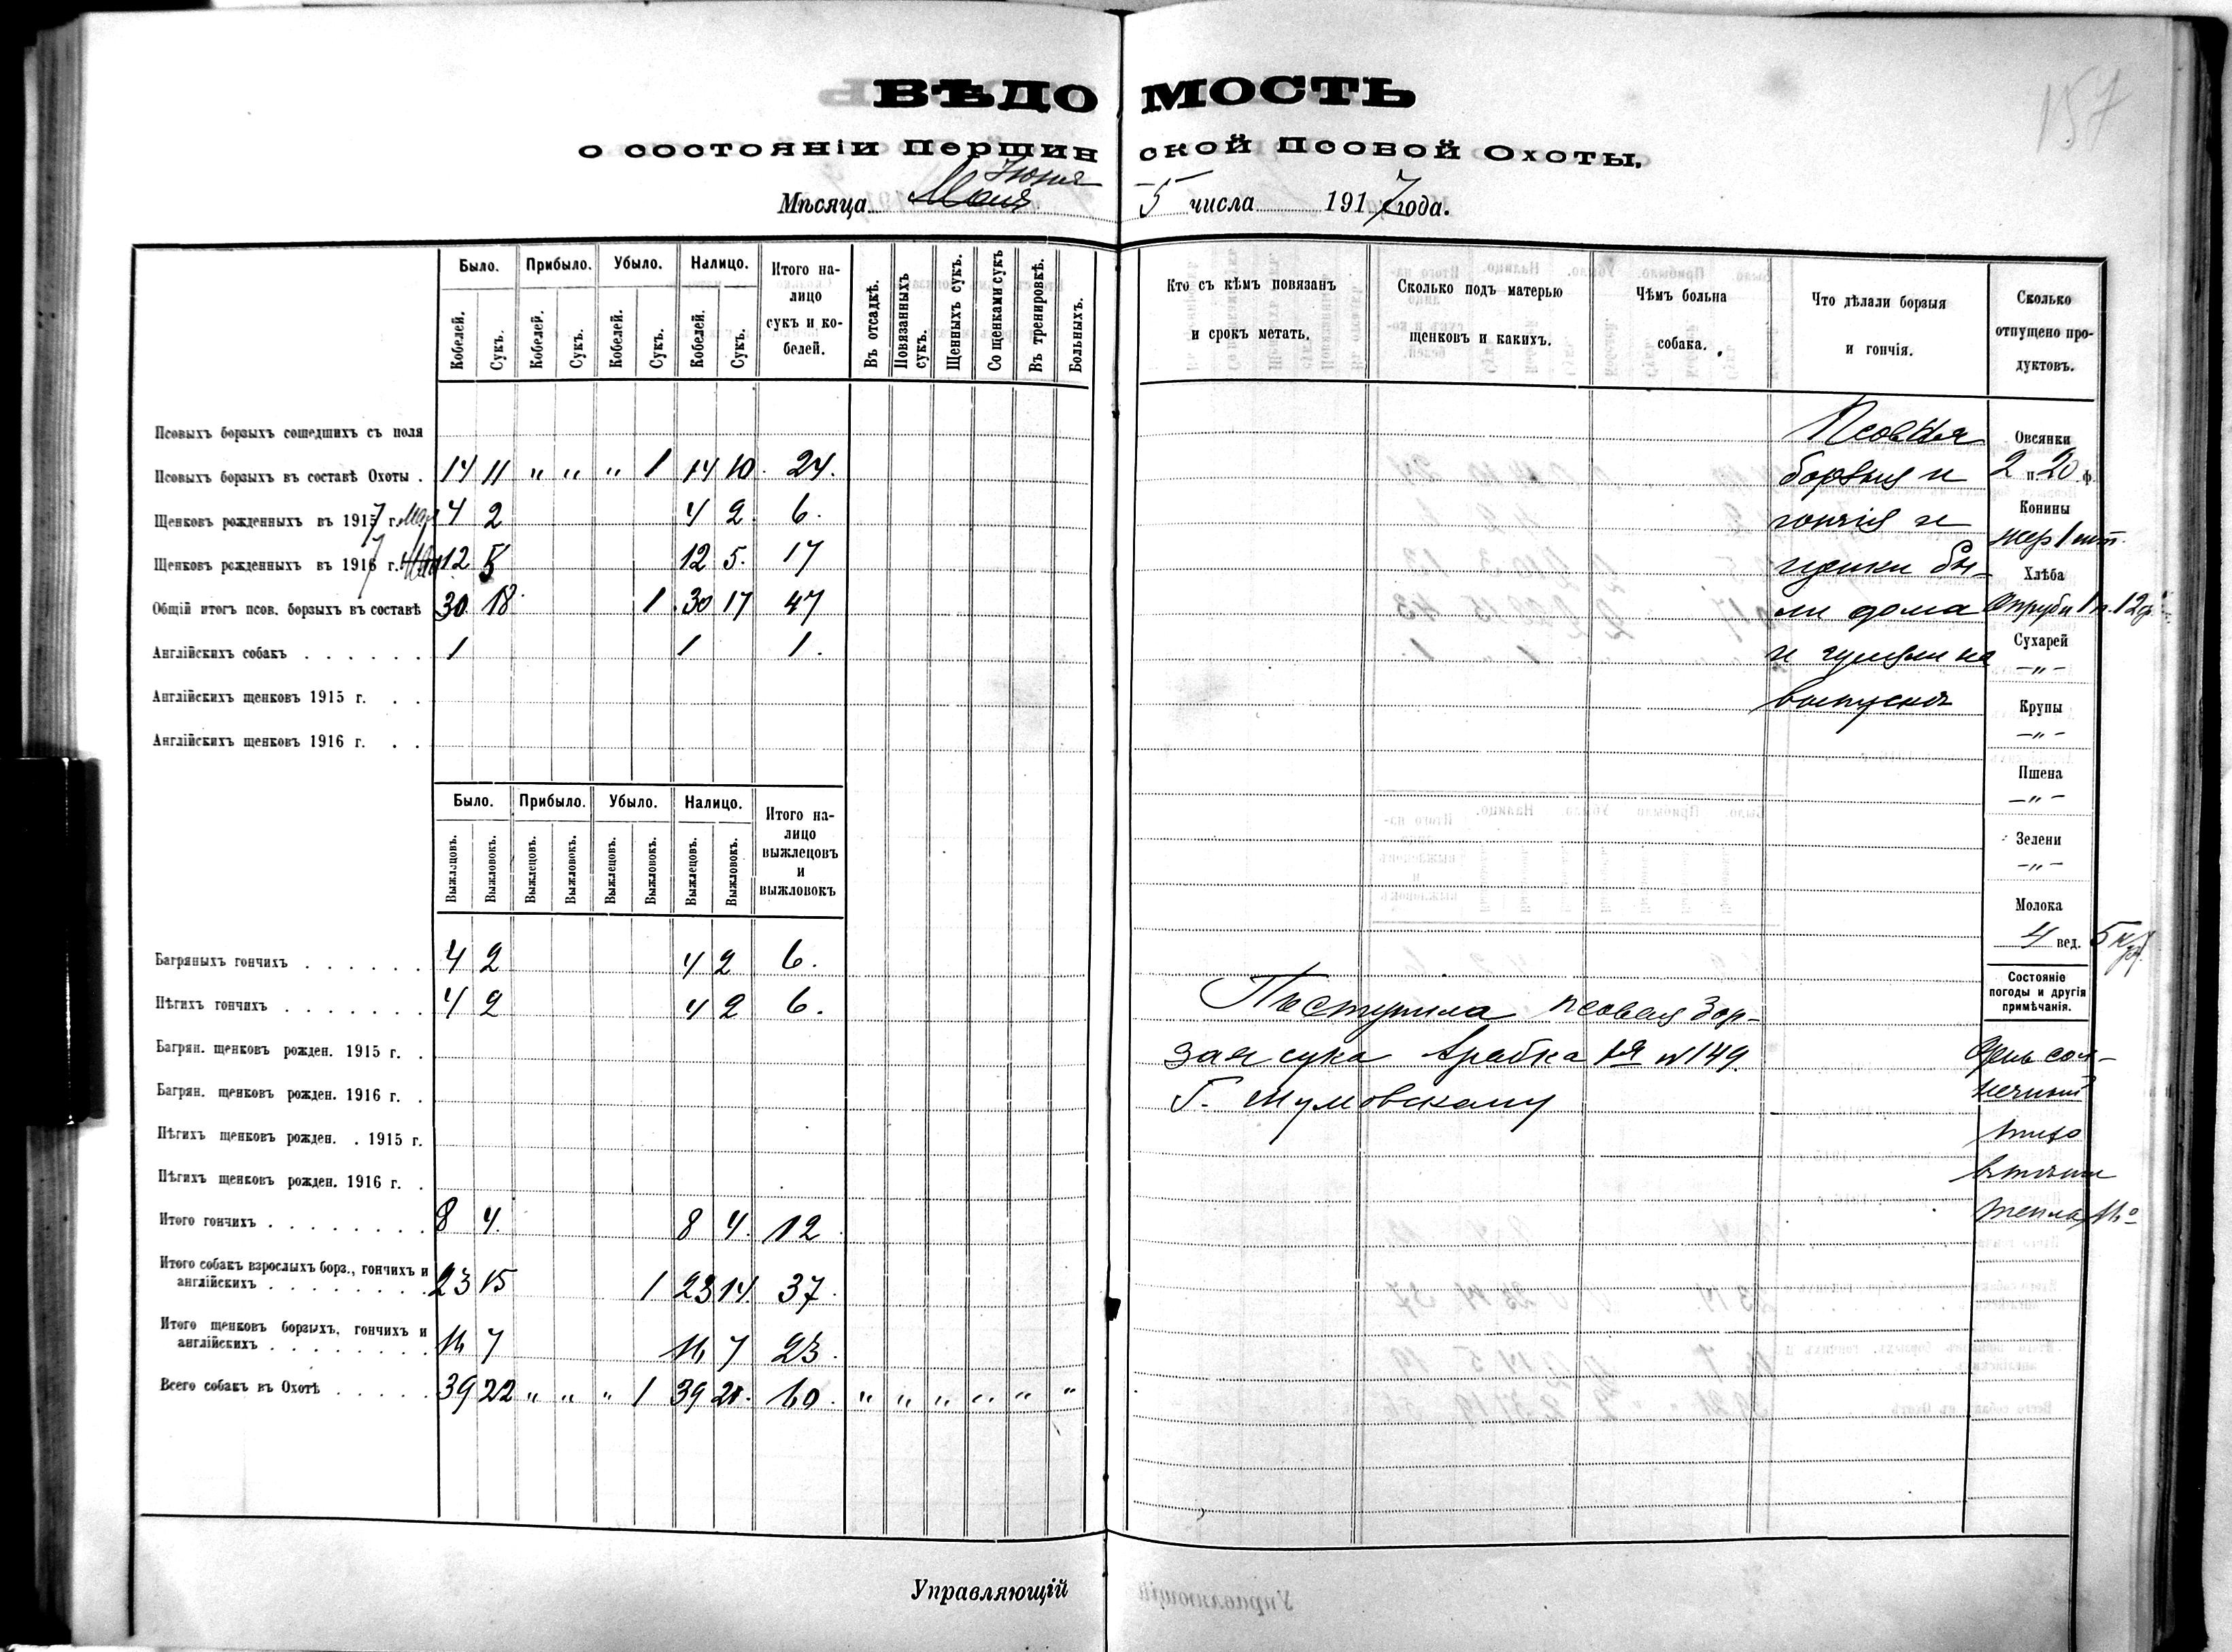 157
ВѢДОМОСТЬ
о состояніи Першинской Псовой Охоты.
Іюня
Мѣсяца Мая 5 числа 1917 года.
Было. Прибыло. Убыло. Налицо. Итого налицо сукъ и кобелей. Въ отсадкѣ. Повязанныхъ сукъ. Щенныхъ сукъ. Со щенками сукъ Въ тренировкѣ. Больныхъ. Кто съ кѣмъ повязанъ и срокъ метать. Сколько подъ матерью щенковъ и какихъ. Чѣмъ больна собака. Что дѣлали борзыя и гончія. Сколько отпущено продуктовъ.
Кобелей. Сукъ. Кобелей. Сукъ. Кобелей. Сукъ. Кобелей. Сукъ.
Псовыхъ борзыхъ сошедшихъ съ поля
Псовыхъ борзыхъ въ составѣ Охоты . 14 11 " " " 1 14 10. 24.
Щенковъ рожденныхъ въ 1917 г. Мая 4 2 4 2. 6.
Щенковъ рожденныхъ въ 1917 г. 12 5 12 5. 17
Общій итогъ псов. борзыхъ въ составѣ 30 18 1 30 17 47
Англійскихъ собакъ . . . . . . 1 1 1.
Англійскихъ щенковъ 1915 г. . .
Англійскихъ щенковъ 1916 г. . .
Псовыя
борзыя и
гончія и
щенки бы-
ли дома
и гуляли на
выпускѣ
Овсянки
2 п. 20 ф.
Конины
жер 1 шт.
Хлѣба
Отруби 1 п. 12 ф.
Сухарей
— " —
Крупы
— " —
Пшена
— " —
Зелени
— " —
Молока
4 вед. 5 кр.
Было. Прибыло. Убыло. Налицо. Итого налицо выжлецовъ и выжловокъ
Выжлецовъ. Выжловокъ. Выжлецовъ. Выжловокъ. Выжлецовъ. Выжловокъ. Выжлецовъ. Выжловокъ.
Багряныхъ гончихъ . . . . . . 4 2 4 2 6.
Пѣгихъ гончихъ . . . . . . . 4 2 4 2 6.
Багрян. щенковъ рожден. 1915 г. .
Багрян. щенковъ рожден. 1916 г. .
Пѣгихъ щенковъ рожден. . 1915 г.
Пѣгихъ щенковъ рожден. 1916 г. .
Итого гончихъ . . . . . . . . 8 4. 8 4. 12
Итого собакъ взрослыхъ борз., гончихъ и
англійскихъ . . . . . . . . 23 15 1 23 14. 37.
Итого щенковъ борзыхъ, гончихъ и
англійскихъ . . . . . . . . 16 7 16 7 23.
Всего собакъ въ Охотѣ . . . . . 39 22 " " " 1 39 21. 60. " " " " " "
Поступила псовая бор-
зая сука Арабка 1я № 149.
Г.
Состояніе погоды и другія примѣчанія.
День сол-
нечный
тихо
тепла 16°
Управляющій